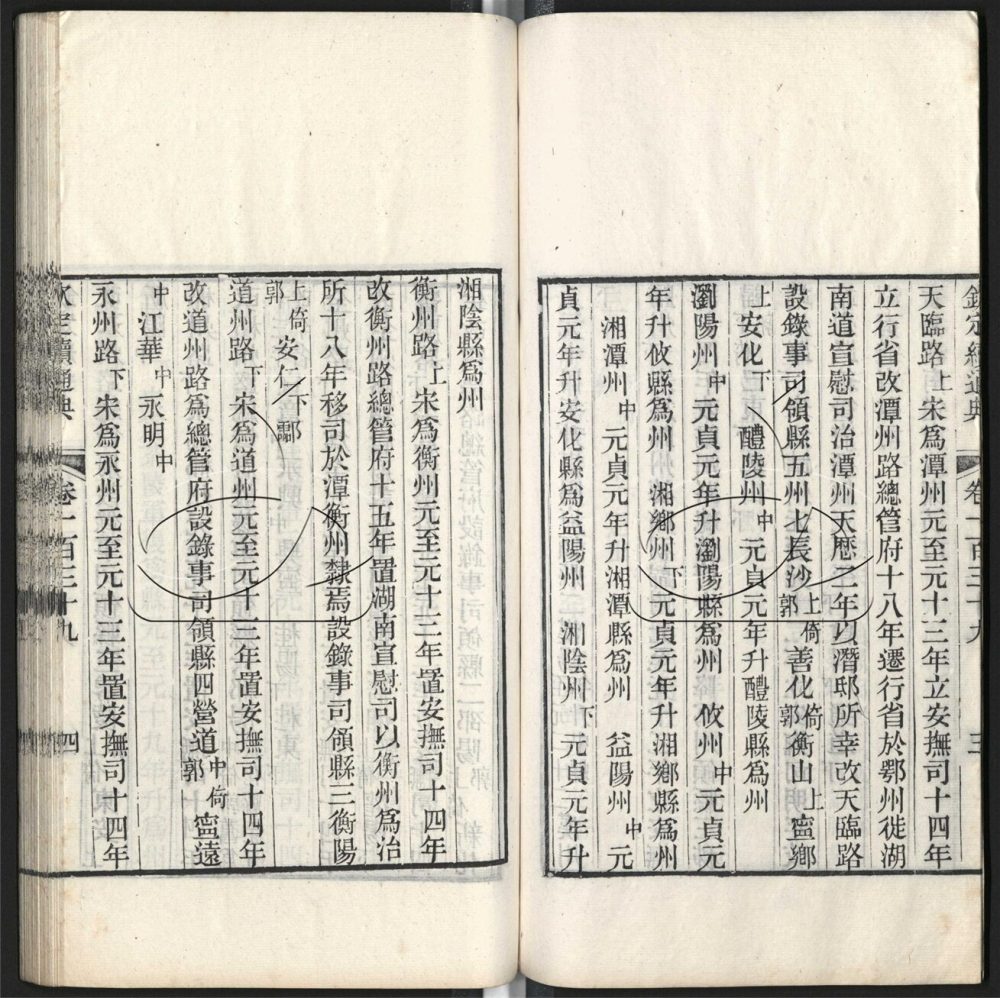 欽定續通典 卷一百三十九 三
天臨路上宋爲潭州元至元十三年立安撫司十四年
立行省改潭州路總管府十八年遷行省於鄂州徙湖
南道宣慰司治潭州天歷二年以潛邸所幸改天臨路
設錄事司領縣五州七長沙上倚郭善化倚郭衡山上寧鄉
上安化下 醴陵州中元貞元年升醴陵縣爲州
瀏陽州中元貞元年升瀏陽縣爲州 攸州中元貞元
年升攸縣爲州 湘鄉州下元貞元年升湘鄉縣爲州
湘潭州中元貞元年升湘潭縣爲州 益陽州中元
貞元年升安化縣爲益陽州 湘陰州下元貞元年升
湘陰縣爲州
衡州路上宋爲衡州元至元十三年置安撫司十四年
改衡州路總管府十五年置湖南宣慰司以衡州爲治
所十八年移司於潭衡州隸焉設錄事司領縣三衡陽
上倚郭安仁下酃下
道州路下宋爲道州元至元十三年置安撫司十四年
改道州路爲總管府設錄事司領縣四營道中倚郭寧遠
中江華中永明中
永州路下宋爲永州元至元十三年置安撫司十四年
欽定續通典 卷一百三十九 四